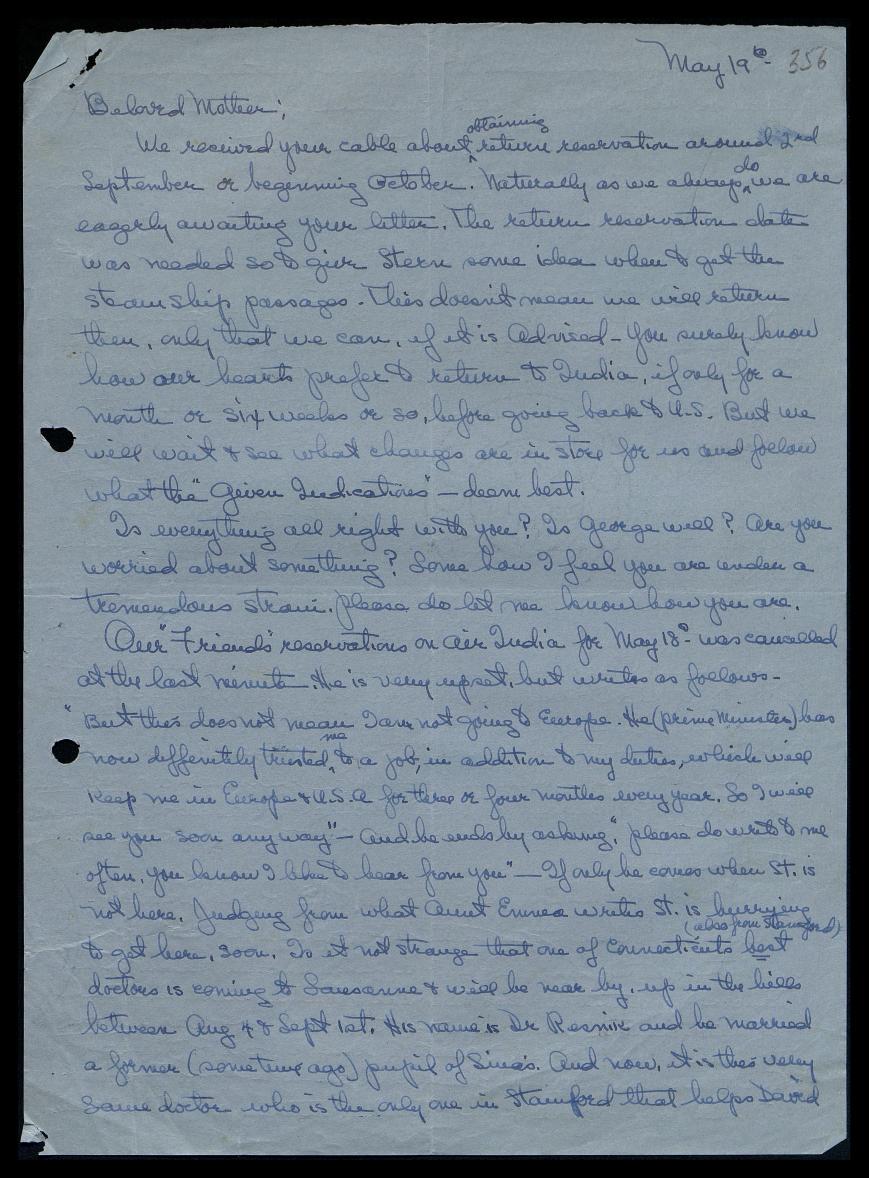 May 19th - 356
Beloved Mother;
obtaining
We received your cable about return reservation around 2nd
do
September or beginning October. Naturally as we always we are
eagerly awaiting your letter. The return reservation date
was needed so to give Stern some idea when to get the
steamship passages. This doesn't mean we will return
then, only that we can, if it is Advised - You surely know
how our hearts prefer to return to India, if only for a
month or six weeks or so, before going back to U.S. But we
will wait & see what changes are in store for us and follow
what the "Given Indications" - deem best.
Is everything all right with you? Is George well? Are you
worried about something? Some how I feel you are under a
tremendous strain. Please do let me know how you are.
Our "Friends" reservations on Air India for May 18th was cancelled
at the last minute. He is very upset, but writes as follows -
"But this does not mean I am not going to Europe. He (prime Minister) has
me
now deffinitely trusted to a job, in addition to my duties, which will
keep me in Europe & U.S.A for three or four months every year. So I will
see you soon anyway" - And he ends by asking, "please do write to me
often, you know I like to hear from you" - If only he comes when St. is
not here. Judging from what Aunt Emma writes St. is hurrying
(also from Stamford)
to get here, soon. Is it not strange that one of Connecticuts best
doctors is coming to Lausanne & will be near by, up in the hills
between Aug 4 & Sept 1st. His name is Dr Resnik and he married
a former (sometime ago) pupil of Sina's. And now, it is this very
same doctor who is the only one in Stamford that helps David